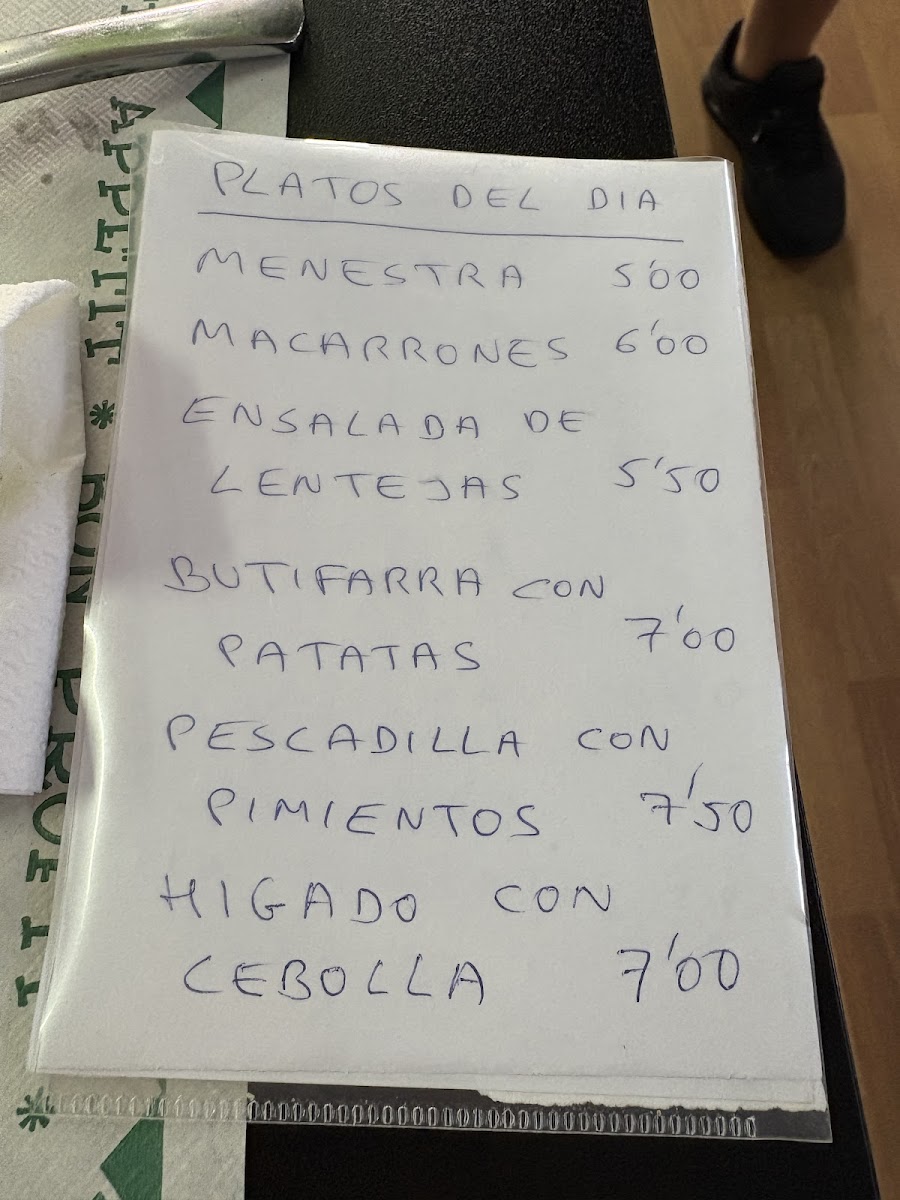 PLATOS DEL DIA
MENESTRA 5'00
MACARRONES 6'00
ENSALADA DE
LENTEJAS 5'50
BUTIFARRA CON
PATATAS 7'00
PESCADILLA CON
PIMIENTOS 7'50
HIGADO CON
CEBOLLA 7'00
APPETIT * BON PROFIT *